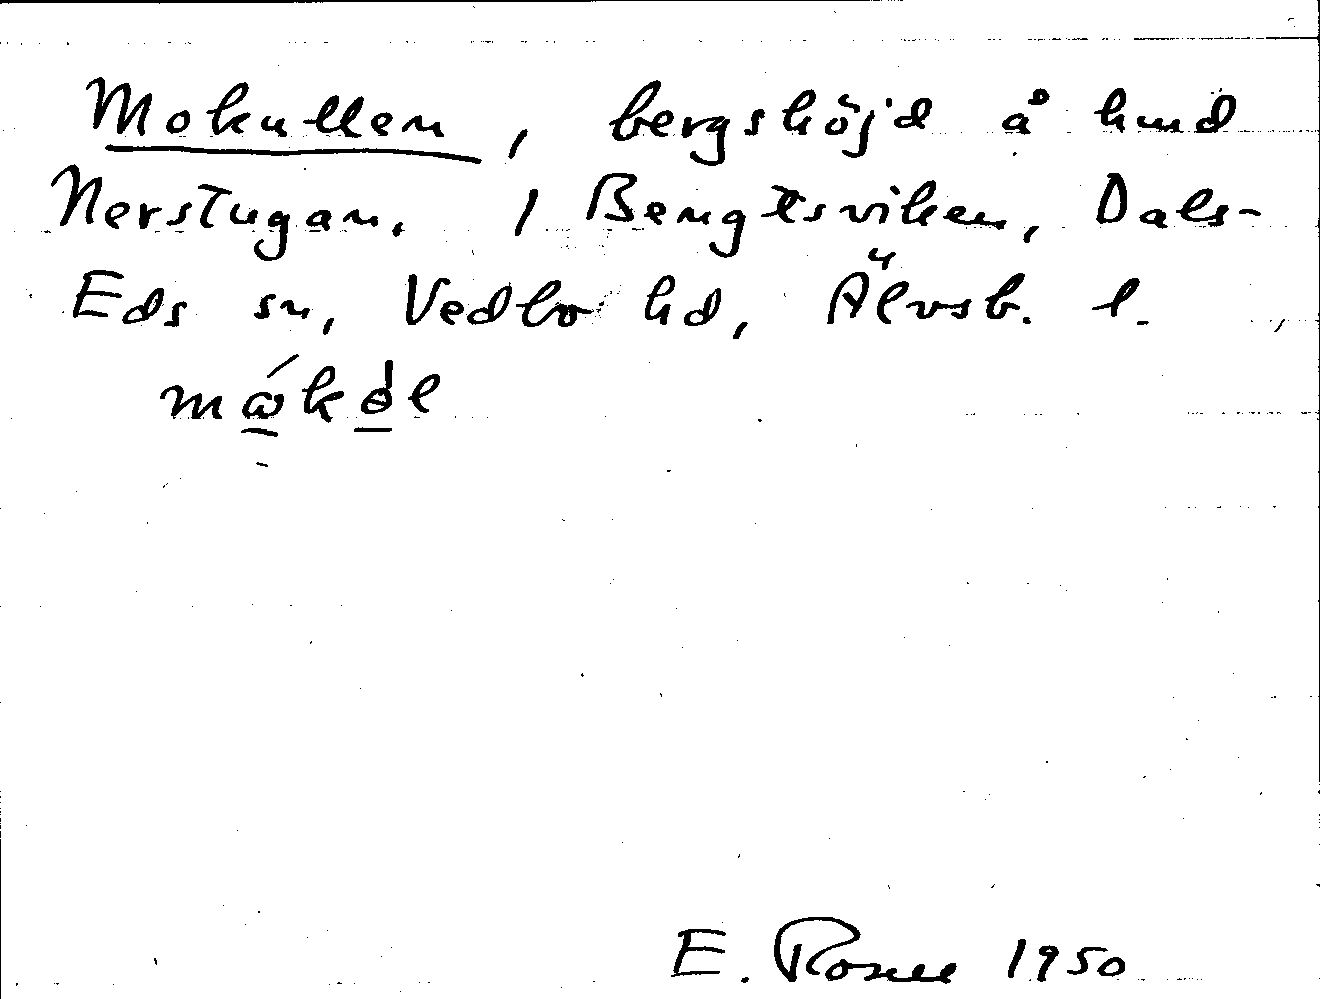 Mokullen, bergshöjd å hmd
Nerstugan. 1 Bengtsviken, Dals-
Eds sn, Vedbo hd, Älvsb. l.
E. Rosell 1950